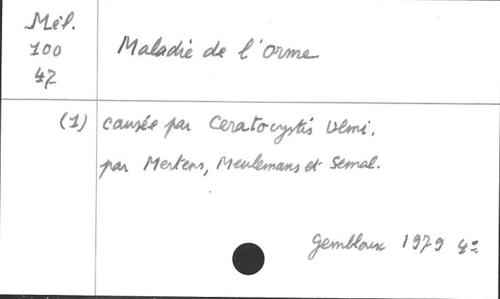 Mél.
100
47
Maladie de l'orme
(1) causée par Ceratocystis Ulmi,
par Mertens, Meulemans et Semal.
Gembloux 1979 4º